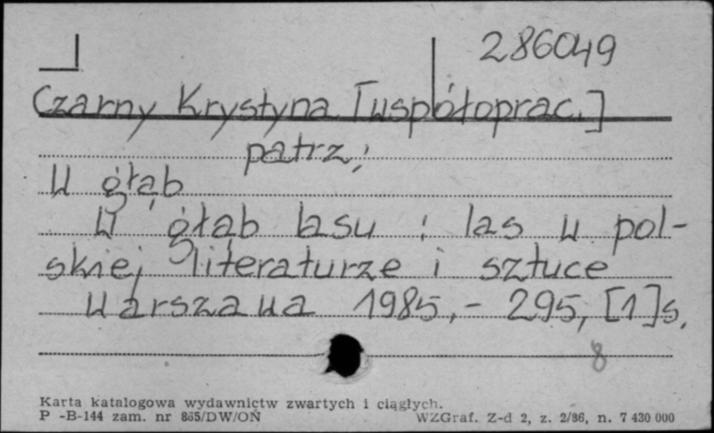 286049
Czarny Krystyna [współoprac.]
patrz:
W głąb
W głąb lasu : las w pol-
skiej literaturze i sztuce
Warszawa 1985,- 295, [1]s.
8
Karta katalogowa wydawnictw zwartych i ciągłych.
P -B-144 zam. nr 855/DW/ON WZGraf. Z-d 2, z. 2/86, n. 7 430 000